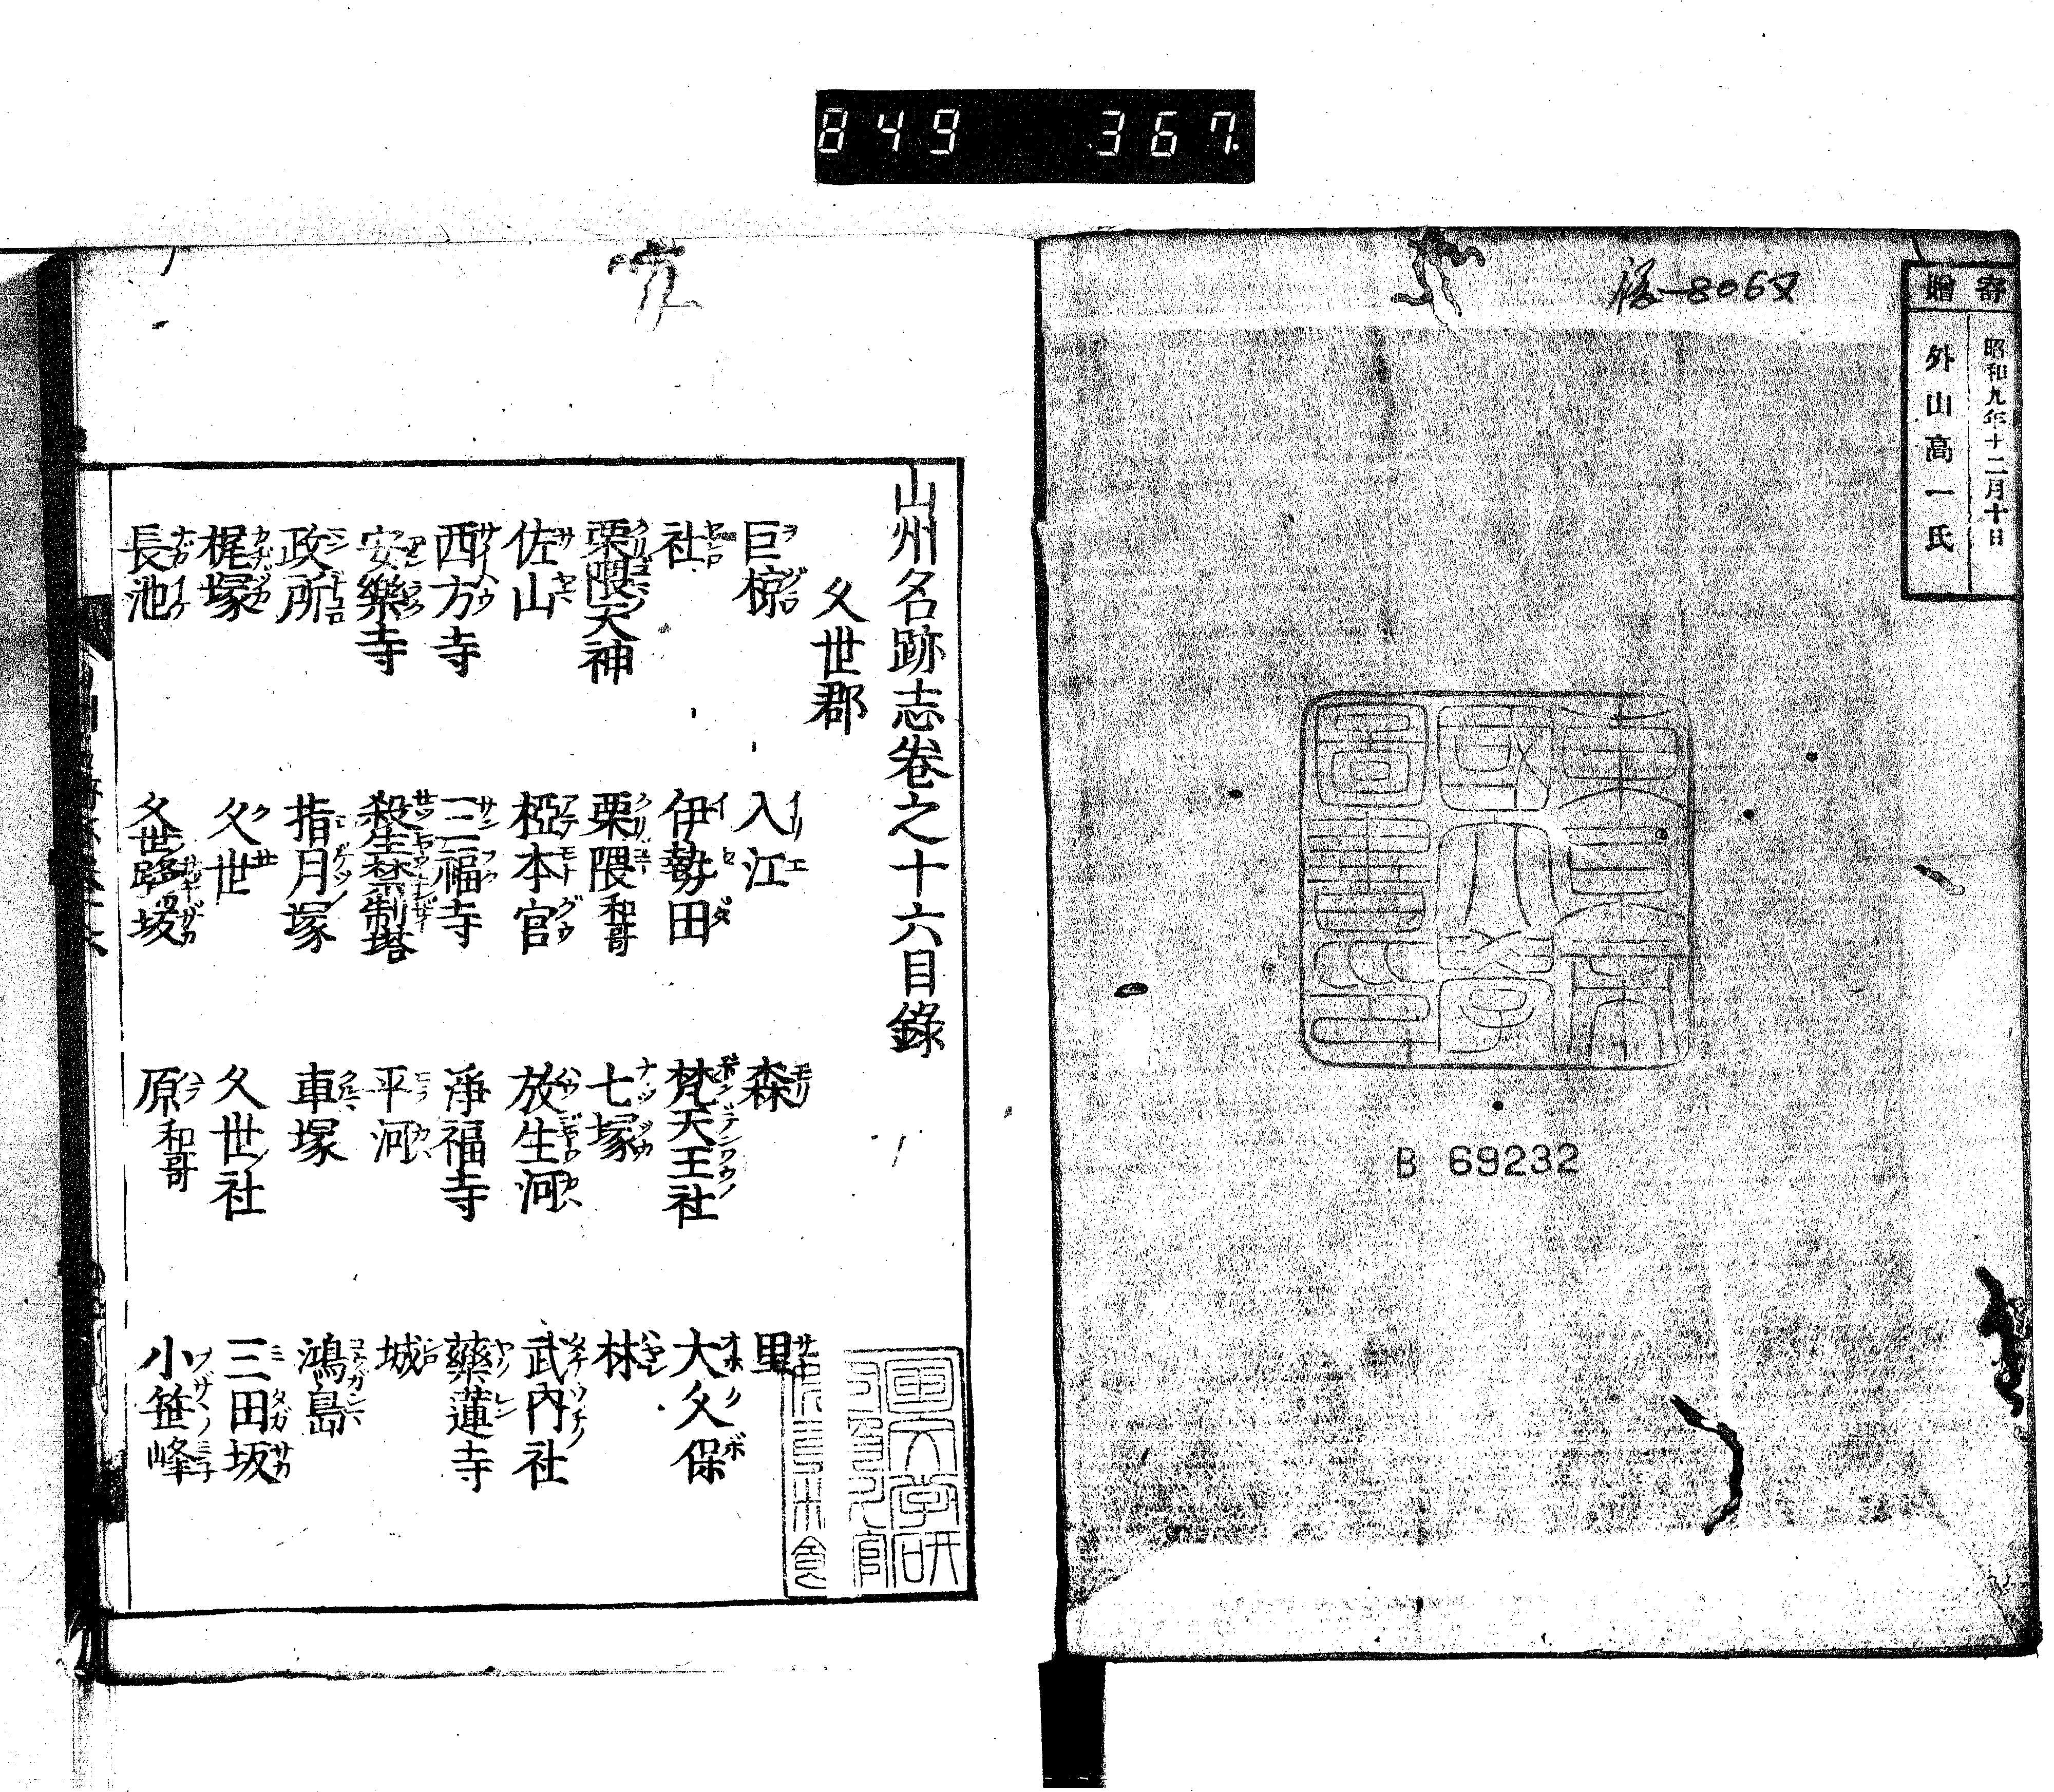 849 367
寄贈
昭和九年十二月十日
外山高一氏
8068
B 69232
山州名跡志卷之十六目錄
久世郡
巨椋 入江 森 里
社 伊勢田 梵天王社 大久保
栗隈天神 栗隈和哥 七塚 林
佐山 椏本宮 放生河 武内社
西方寺 三福寺 淨福寺 藥蓮寺
安樂寺 殺生禁制塔 平河 城
政所 指月塚 車塚 鴻島
梶塚 久世 久世ノ社 三田坂
長池 久世路坂 原和哥 小笹峰